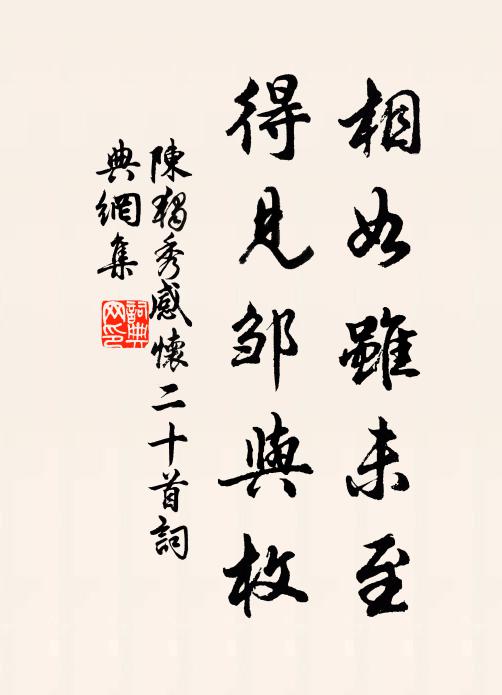 相如雖未至
得見邹與枚
陳獨秀感懷二十首詞
典網集
詞典
网印